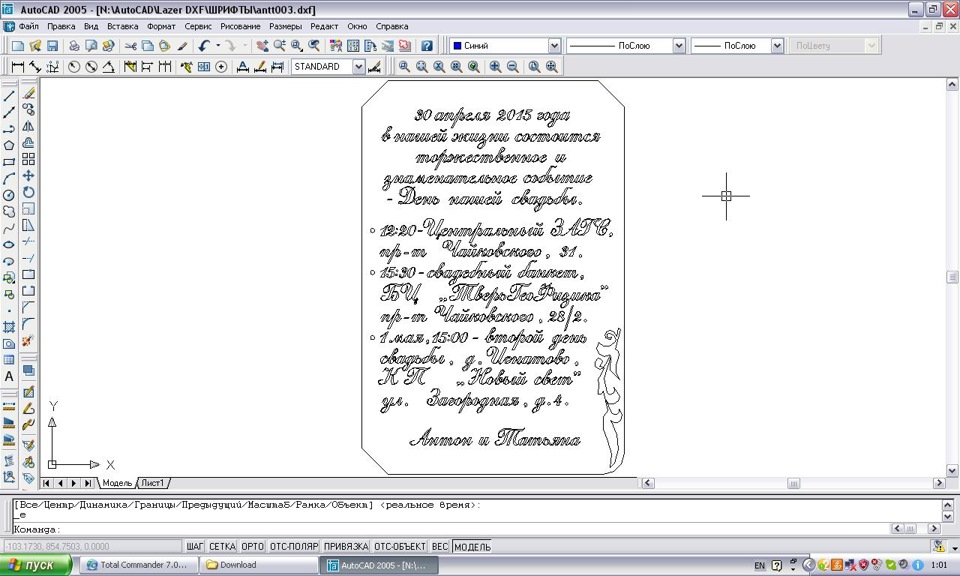 AutoCAD 2005 - [N:\AutoCAD\Lazer DXF\ШРИФТЫ\antt003.dxf]
Файл Правка Вид Вставка Формат Сервис Рисование Размеры Редакт Окно Справка
Синий ПоСлою ПоСлою ПоЦвету
STANDARD
30 апреля 2015 года
в нашей жизни состоится
торжественное и
знаменательное событие
- День нашей свадьбы.
12:20-Центральный ЗАГС,
пр-т Чайковского, 31.
15:30-свадебный банкет,
БЦ „ТверьГеоФизика"
пр-т Чайковского, 28/2.
1 мая, 15:00 - второй день
свадьбы, д. Игнатово,
К П „Новый свет"
ул. Загородная, д.4.
Антон и Татьяна
Y
X
Модель Лист1
[Все/Центр/Динамика/Границы/Предыдущий/Масштаб/Рамка/Объект] <реальное время>:
_e
Команда:
-103.1730, 854.7503, 0.0000 ШАГ СЕТКА ОРТО ОТС-ПОЛЯР ПРИВЯЗКА ОТС-ОБЪЕКТ ВЕС МОДЕЛЬ
пуск Total Commander 7.0... Download AutoCAD 2005 - [N:\... EN 1:01